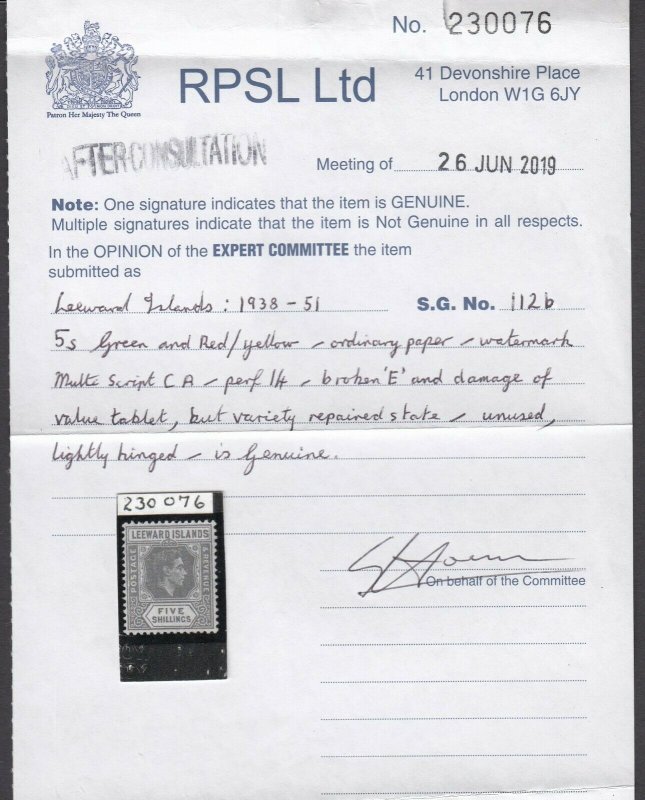 No. 230076
RPSL Ltd
41 Devonshire Place
London W1G 6JY
Patron Her Majesty The Queen
AFTER CONSULTATION
Meeting of 26 JUN 2019
Note: One signature indicates that the item is GENUINE.
Multiple signatures indicate that the item is Not Genuine in all respects.
In the OPINION of the EXPERT COMMITTEE the item
submitted as
Leeward Islands : 1938-51 S.G. No. 112b
5s Green and Red/yellow - ordinary paper - watermark
Mult Script CA - perf 14 - broken 'E' and damage of
value tablet, but variety repaired state - unused,
lightly hinged - is Genuine.
230 076
LEEWARD ISLANDS
POSTAGE
& REVENUE
FIVE
SHILLINGS
On behalf of the Committee